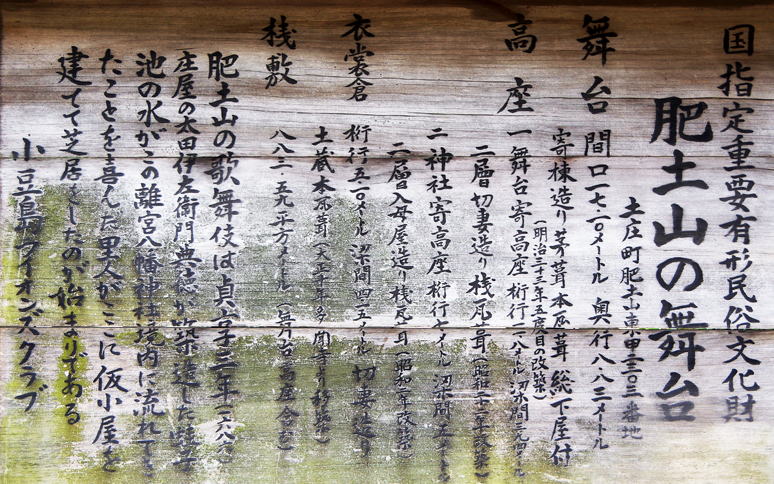 国指定重要有形民俗文化財
肥土山の舞台
土庄町肥土山東甲二三〇三番地
舞台 間口一七・一〇メートル 奥行八・八三メートル
寄棟造り茅葺本瓦葺 総下屋付
(明治三十三年五度目の改築)
高座 一舞台寄高座 桁行 梁間
二層切妻造り桟瓦葺(昭和 年改築)
二神社寄高座 桁行七メートル 梁間 メートル
二層入母屋造り桟瓦葺(昭和 年改築)
衣裳倉 桁行五・一〇メートル 梁間四・一五メートル 切妻造り
土蔵本瓦葺(大正 年 移築)
桟敷 八八三・五九平方メートル
肥土山の歌舞伎は貞享三年(一六八六)
庄屋の太田伊左衛門典徳が築造した蛙子
池の水がこの離宮八幡神社境内に流れてき
たことを喜んだ里人がここに仮小屋を
建てて芝居をしたのが始まりである
小豆島ライオンズクラブ